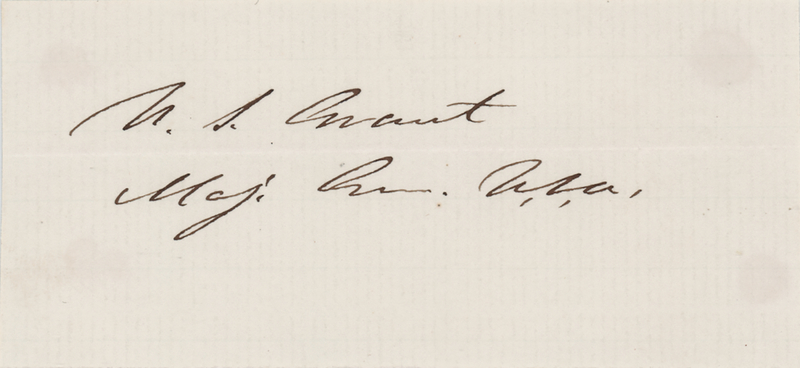 U. S. Grant
Maj. Gen. U.S.A.